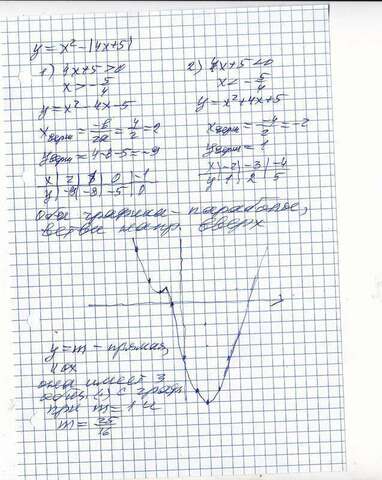 y = x² - |4x+5|
1) 4x+5 > 0
x > -5/4
y = x² - 4x - 5
x верш = -b/2a = 4/2 = 2
y верш = 4-8-5 = -9
x | 2 | 1 | 0 | -1
y | -9 | -8 | -5 | 0
2) 4x+5 < 0
x < -5/4
y = x² + 4x + 5
x верш = -4/2 = -2
y верш = 1
x | -2 | -3 | -4
y | 1 | 2 | 5
Оба графика - параболы,
ветви напр. вверх
y = m - прямая,
|| ox
она имеет 3
общ. (·) с граф.
при m = 1 и
m = 25/16